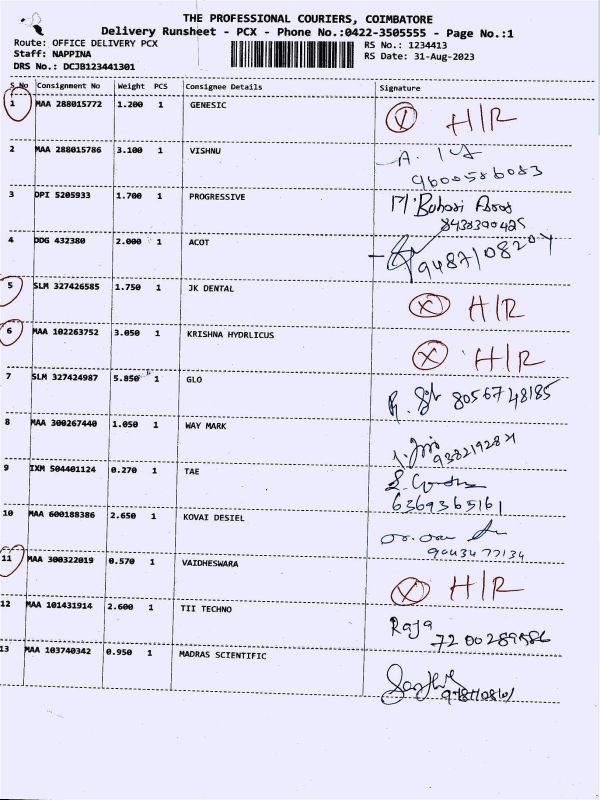 THE PROFESSIONAL COURIERS, COIMBATORE
Delivery Runsheet - PCX - Phone No.:0422-3505555 - Page No.:1
Route: OFFICE DELIVERY PCX
RS No.: 1234413
Staff: NAPPINA
RS Date: 31-Aug-2023
DRS No.: DCJB123441301
S No Consignment No Weight PCS Consignee Details Signature
1 MAA 288015772 1.200 1 GENESIC X H/R
2 MAA 288015786 3.100 1 VISHNU A.
9600586083
3 DPI 5205933 1.700 1 PROGRESSIVE
8438390425
4 DDG 432380 2.000 1 ACOT
9487108204
5 SLM 327426585 1.750 1 JK DENTAL X H/R
6 MAA 102263752 3.050 1 KRISHNA HYDRLICUS X H/R
7 SLM 327424987 5.850 1 GLO 8056748185
8 MAA 300267440 1.050 1 WAY MARK
9 IXM 504401124 0.270 1 TAE
6369365161
10 MAA 600188386 2.650 1 KOVAI DESIEL
9043477134
11 MAA 300322019 0.570 1 VAIDHESWARA X H/R
12 MAA 101431914 2.600 1 TII TECHNO Raja
7200289586
13 MAA 103740342 0.950 1 MADRAS SCIENTIFIC